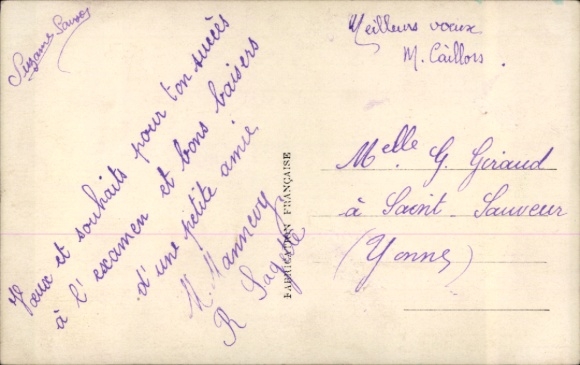 Suzanne
Vœux et souhaits pour ton succès
à l'examen et bons baisers
d'une petite amie
M. Mannevy
R
FABRICATION FRANÇAISE
Meilleurs voeux
M. Caillors.
Melle. G. Giraud
à Saint-Sauveur
(Yonne)